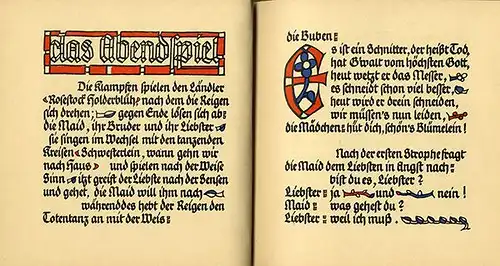 das Abendspiel
Die Klampfen spielen den Ländler
«Rosestock Holderblüh» nach dem die Reigen
sich drehen: gegen Ende lösen sich ab:
die Maid, ihr Bruder und ihr Liebster
sie singen im Wechsel mit den tanzenden
Kreisen «Schwesterlein, wann gehn wir
nach Haus» und spielen nach der Weise
Sinn itzt greift der Liebste nach der Sensen
und gehet, die Maid will ihm nach
währenddes hebt der Reigen den
Totentanz an mit der Weis:
die Buben:
Es ist ein Schnitter, der heißt Tod,
hat G'walt vom höchsten Gott,
heut wetzt er das Messer,
es schneidt schon viel besser,
heut wird er drein schneiden,
wir müssen's nun leiden,
die Mädchen: hüt dich, schön's Blümelein!
Nach der ersten Strophe fragt
die Maid dem Liebsten in Angst nach:
bist du es, Liebster?
Liebster: ja und nein!
Maid: was gehest du?
Liebster: weil ich muß.